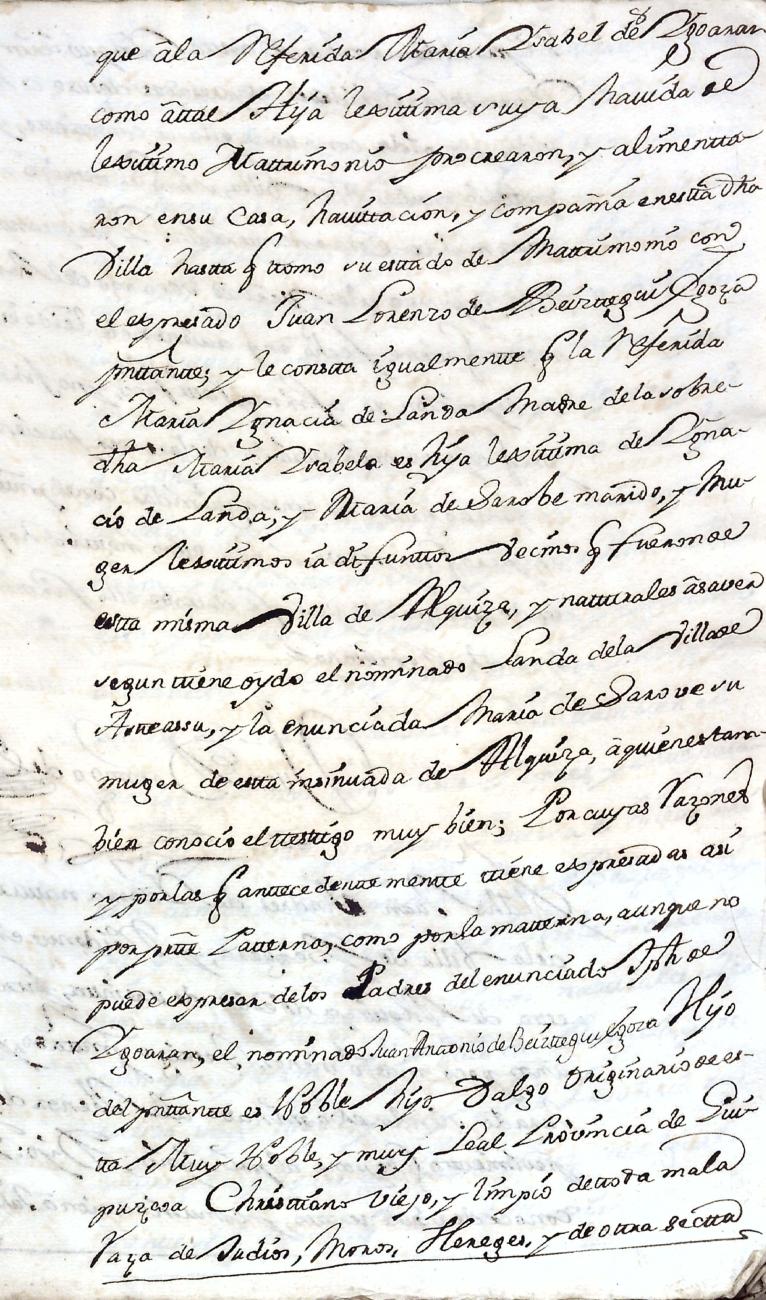 que â la Referida Maria Ysabel de Ygoaran
como âttal Hija lexittima suya havida de
lexittimo Mattrimonio procrearon, y alimentta-
ron en su Casa, havittación, y compañia en estta dha
Villa hastta q ttomo su esttado de Mattrimonio con
el expresado Juan Lorenzo de Beizttegui Egoza
presttantte; y le constta igualmentte q la Referida
Maria Ygnacia de Landa Madre de la sobre-
dha Maria Ysabela es hija lexittima de Ygna-
cio de Landa, y Maria de Sarobe marido, y Mu-
ger lexittimos ia difunttos Vecinos q fueron de
estta misma Villa de Alquiza, y natturales â saver
segun ttiene oydo el nominado Landa de la Villa de
Astteassu, y la enunciada Maria de Sarove su
muger de estta insinuada de Alquiza, â quienes tam-
bien conoció el ttesttigo muy bien; Por cuyas Razones
y por las q anttecedenttementte ttiene expresadas asi
por partte Patterna, como por la matterna, aunque no
puede expresar de los Padres del enunciado Jph de
Ygoaran, el nominado Juan Antonio de Beizttegui Egoza Hijo
del presttantte es Noble hijo Dalgo originario de es-
tta Muy Noble, y muy Leal Provincia de Gui-
puzcoa Christtiano Viejo, y limpio de ttoda mala
Raza de Judios, Moros, Hereges, y de ottra sectta